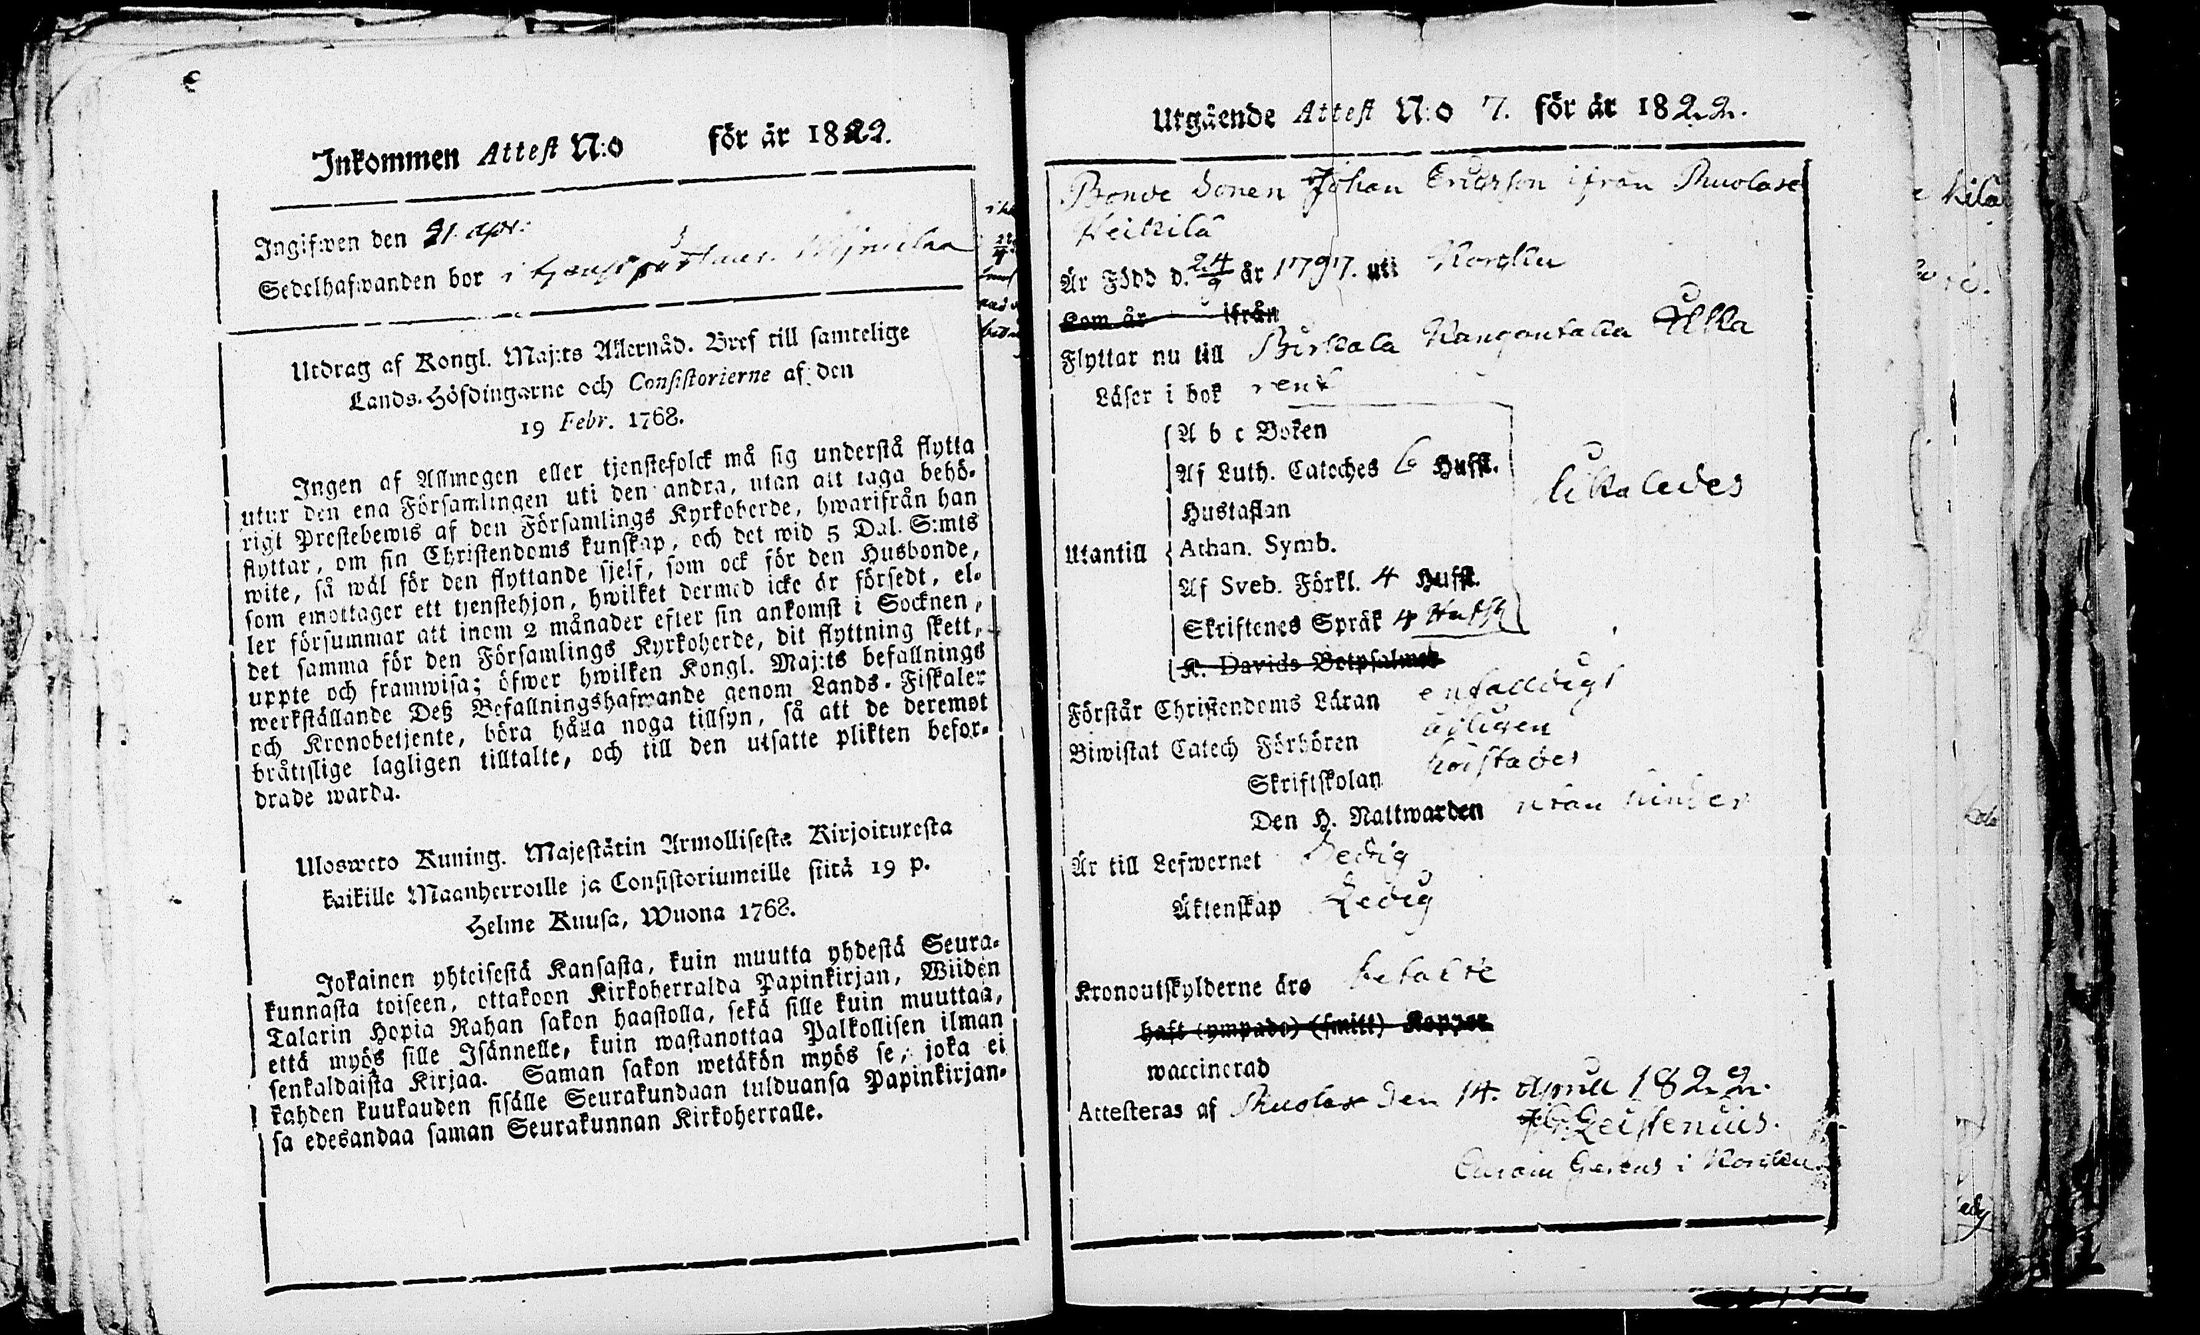 Inkommen Attest N:o för år 1822.
Ingifwen den 21 apr:
Sedelhafwanden bor i
Utdrag af Kongl. Maj:ts Allernåd. Bref till samtelige
Lands-Höfdingarne och Consistorierne af den
19 Febr. 1768.
Ingen af Allmogen eller tjenstefolck må sig understå flytta
utur den ena Församlingen uti den andra, utan att taga behö-
rigt Prestebewis af den Församlings Kyrkoherde, hwarifrån han
flyttar, om sin Christendoms kunskap, och det wid 5 Dal. S:mts
wite, så wäl för den flyttande sjelf, som ock för den Husbonde,
som emottager ett tjenstehjon, hwilket dermed icke är försedt, el-
ler försummar att inom 2 månader efter sin ankomst i Socknen,
det samma för den Församlings Kyrkoherde, dit flyttning skett,
uppte och framwisa; öfwer hwilken Kongl. Maj:ts befallnings
werkställande Deß Befallningshafwande genom Lands-Fiskaler
och Kronobetjente, böra hålla noga tillsyn, så att de deremot
bråttslige lagligen tilltalte, och till den utsatte plikten befor-
drade warda.
Ulosweto Kuning. Majestätin Armollisesta Kirjoituxesta
kaikille Maanherroille ja Consistoriumeille siitä 19 p.
Helme Kuusa, Wuona 1768.
Jokainen yhteisestä Kansasta, kuin muutta yhdestä Seura-
kunnasta toiseen, ottakoon Kirkoherralda Papinkirjan, Wiiden
Talarin Hopia Rahan sakon haastolla, sekä sille kuin muuttaa,
että myös sille Isännelle, kuin wastanottaa Palkollisen ilman
senkaldaista Kirjaa. Saman sakon wetäkön myös se, joka ei
kahden kuukauden sisälle Seurakundaan tulduansa Papinkirjan-
sa edesandaa saman Seurakunnan Kirkoherralle.
Utgående Attest N:o 7. för år 1822.
Bonde Sonen Johan Ericsson ifrån Ruolaxe
Heikilä
Är Född d. 24/9 år 1797. uti Korpku
Kom år ifrån
Flyttar nu till Birkala
Läser i bok rent
A b c Boken
Af Luth. Cateches 6 Hufst.
Hustaflan
likaledes
Utantill
Athan. Symb.
Af Sveb. Förkl. 4 Hufst.
Skriftenes Språk 4 Hufst
K. Davids Botpsalmer
Förstår Christendoms Läran enfalldigt
Biwistat Catech Förhören
Skriftskolan
Den H. Nattwarden utan hinder
Är till Lefwernet
Äktenskap Ledig
Kronoutskylderne äro betalte
haft (ympade) (smitt) Koppor
waccinerad
Attesteras af Ruolax den 14. April 1822.